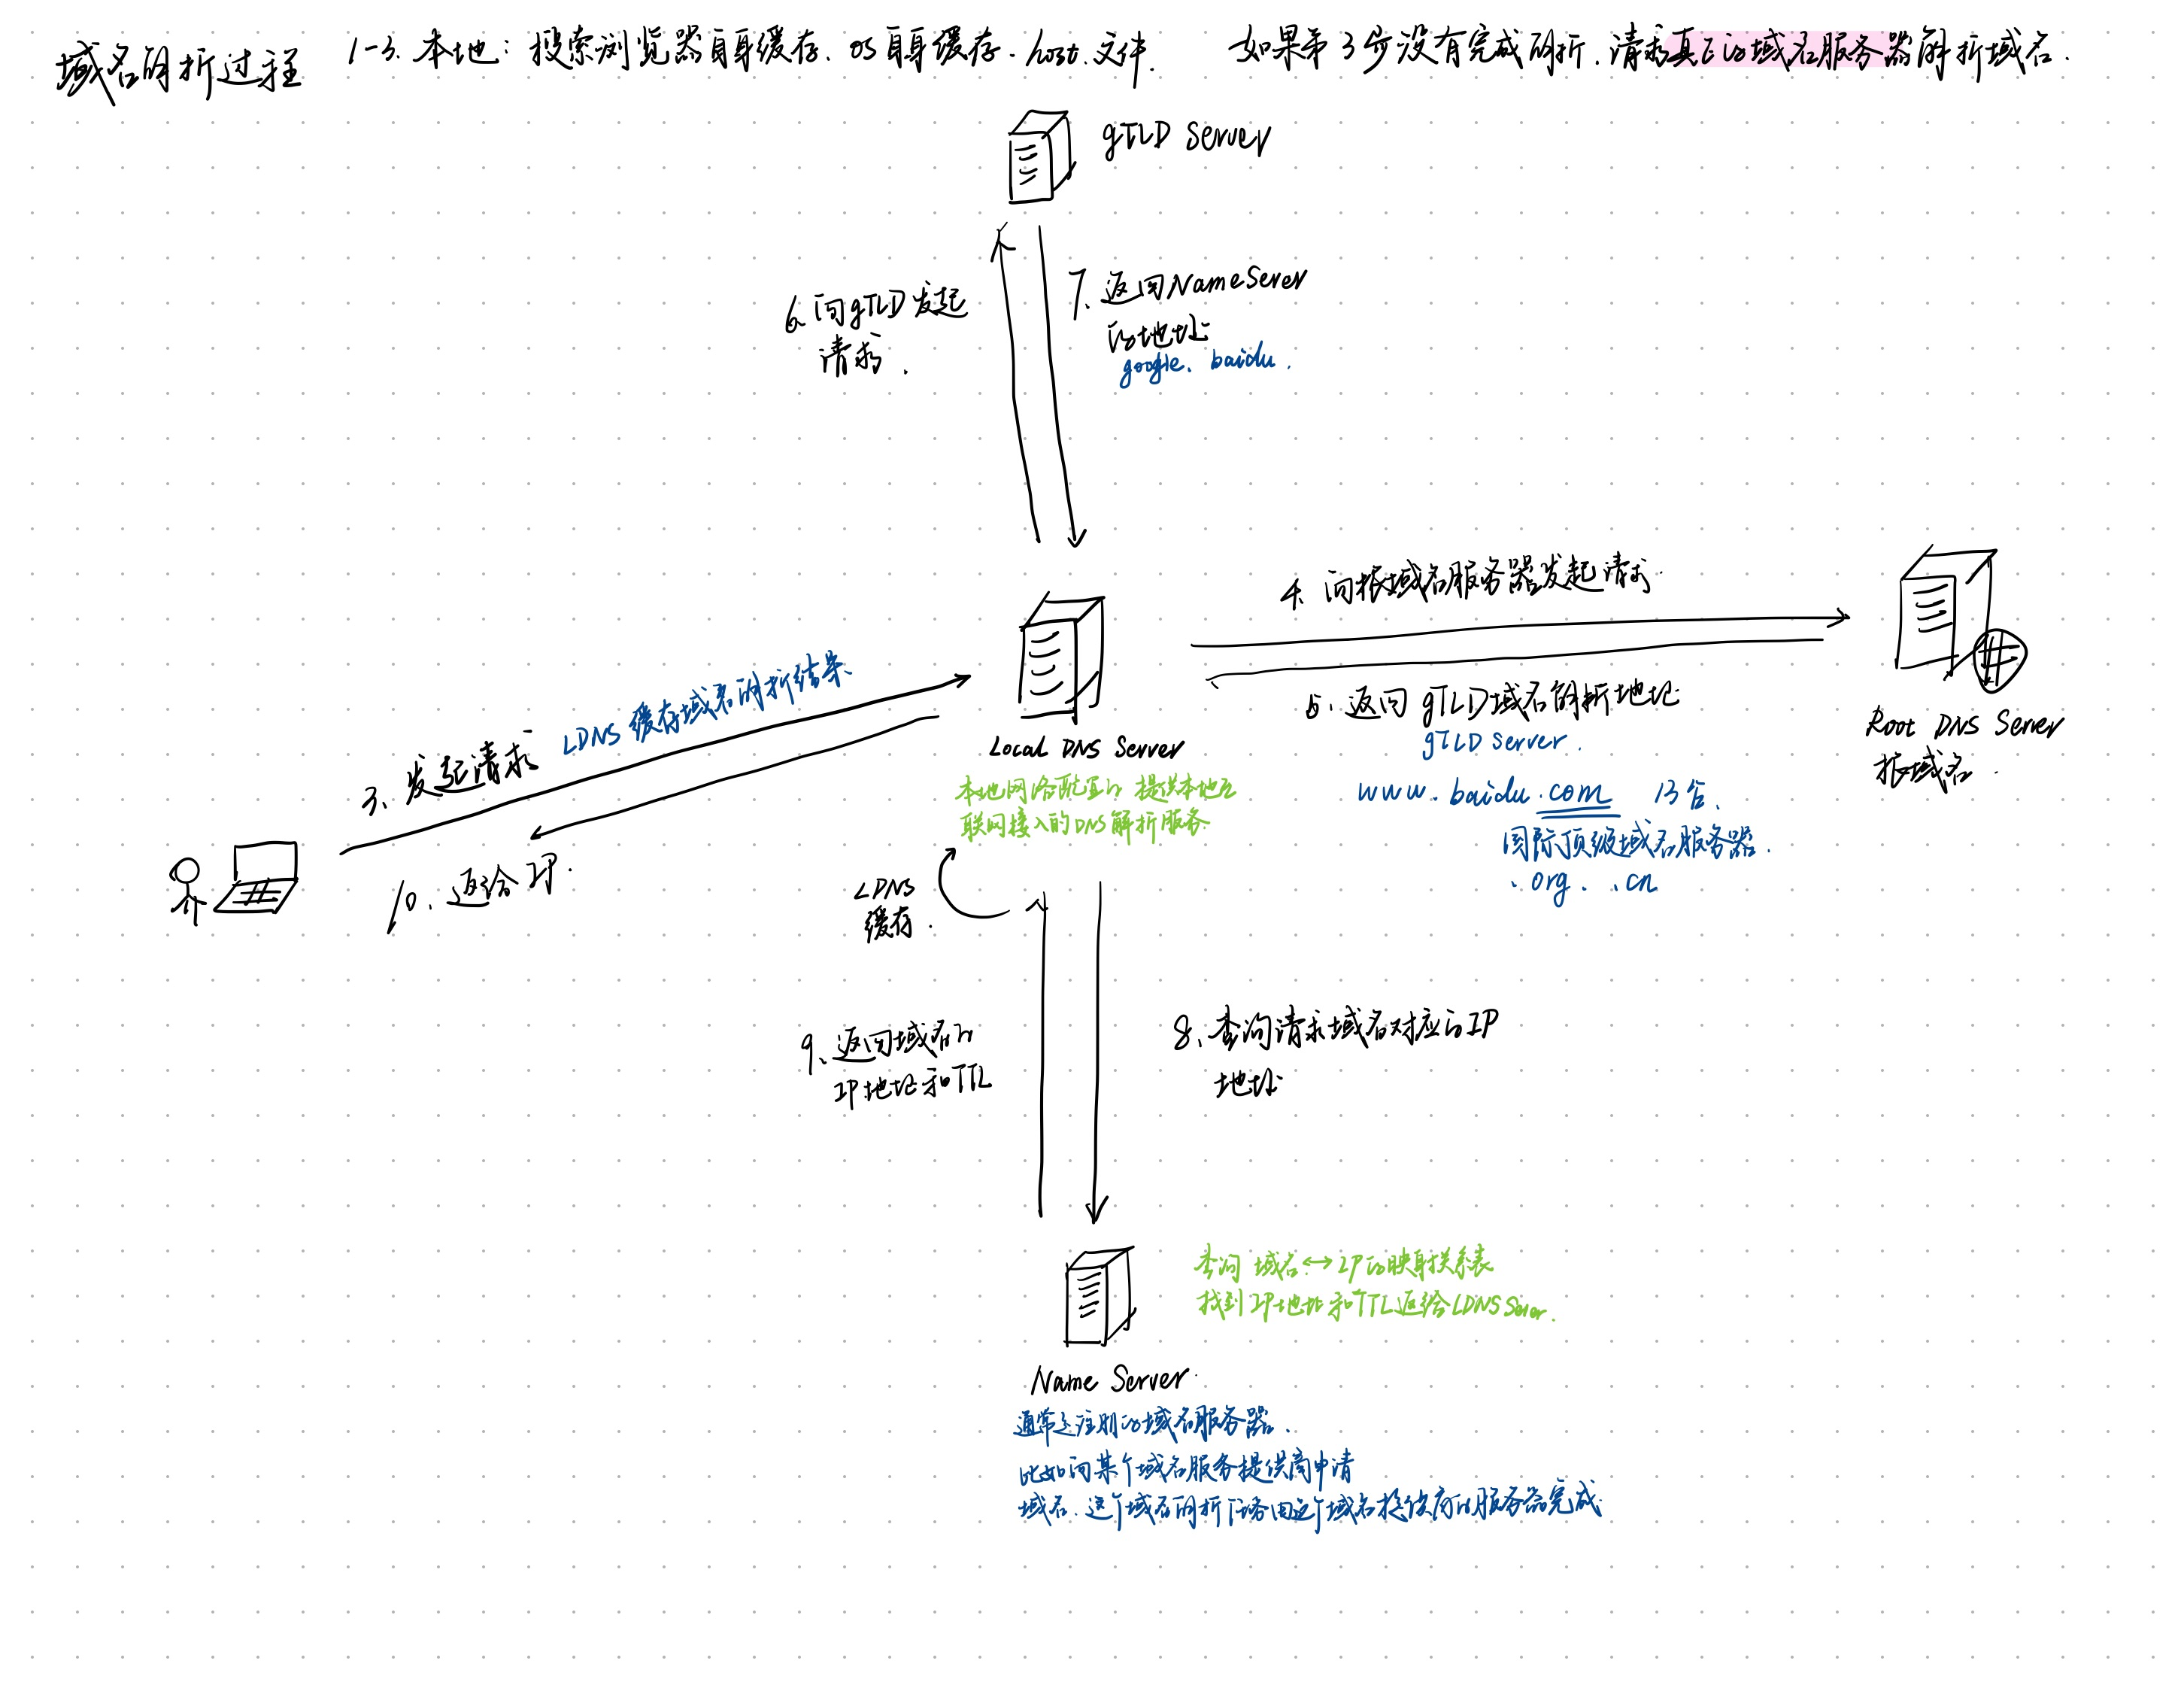 域名解析过程
1-3. 本地：搜索浏览器自身缓存、OS自身缓存、host.文件.
如果第3步没有完成解析，请求真正的域名服务器解析域名.
gTLD Server
6. 向gTLD发起
请求.
7. 返回NameServer
的地址
google、baidu.
4. 向根域名服务器发起请求.
5. 返回gTLD域名解析地址
gTLD Server.
www.baidu.com 13台、
国际顶级域名服务器.
.org. .cn
Root DNS Server
根域名.
3、发起请求 LDNS缓存域名解析结果、
10、返给IP.
Local DNS Server
本地网络配置的 提供本地互
联网接入的DNS解析服务.
LDNS
缓存.
9、返回域名的
IP地址和TTL
8、查询请求域名对应的IP
地址
查询 域名↔IP的映射关系表
找到IP地址和TTL返给LDNS Server.
Name Server.
通常是注册的域名服务器.
比如向某个域名服务提供商申请
域名. 这个域名解析任务由这个域名提供商的服务器完成.